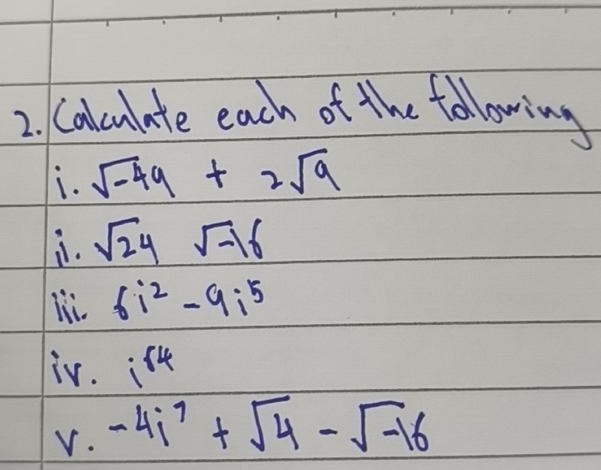 2. Calculate each of the following
i. √-49 + 2√9
ii. √24 √-16
iii. 6i² - 9i⁵
iv. i⁶⁴
v. -4i⁷ + √4 - √-16